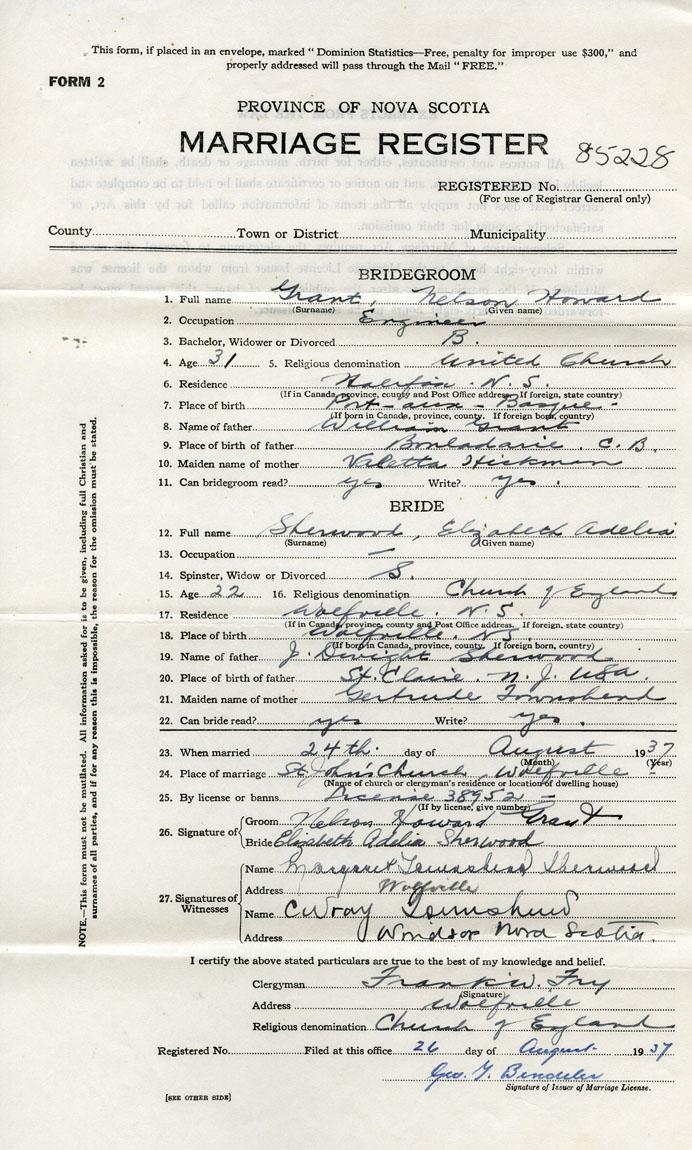 This form, if placed in an envelope, marked "Dominion Statistics—Free, penalty for improper use $300," and
properly addressed will pass through the Mail "FREE."
FORM 2
PROVINCE OF NOVA SCOTIA
MARRIAGE REGISTER
85228
REGISTERED No.
(For use of Registrar General only)
County Town or District Municipality
BRIDEGROOM
1. Full name Grant, Nelson Howard
(Surname) (Given name)
2. Occupation Engineer
3. Bachelor, Widower or Divorced B.
4. Age 31 5. Religious denomination United Church
6. Residence Halifax. N. S.
(If in Canada, province, county and Post Office address. If foreign, state country)
7. Place of birth Port-aux-Basque-
(If born in Canada, province, county. If foreign born, country)
8. Name of father William Grant
9. Place of birth of father C. B.
10. Maiden name of mother Valetta Hickman
11. Can bridegroom read? yes Write? yes.
BRIDE
12. Full name Sherwood, Elizabeth Adelia
(Surname) (Given name)
13. Occupation —
14. Spinster, Widow or Divorced S.
15. Age 22 16. Religious denomination Church of England
17. Residence Wolfville. N. S.
(If in Canada, province, county and Post Office address. If foreign, state country)
18. Place of birth Wolfville. N.S.
(If born in Canada, province, county. If foreign born, country)
19. Name of father J. Dwight Sherwood
20. Place of birth of father St. Claire. N. J. USA.
21. Maiden name of mother Gertrude Townshend
22. Can bride read? yes Write? yes.
23. When married 24th. day of August 1937
(Month) (Year)
24. Place of marriage St John's Church, Wolfville -
(Name of church or clergyman's residence or location of dwelling house)
25. By license or banns License 38952 -
(If by license, give number)
26. Signature of Groom Nelson Howard Grant
Bride Elizabeth Adelia Sherwood
27. Signatures of Witnesses
Name Margaret Townshend Sherwood
Address Wolfville
Name C Wray Townshend
Address Windsor Nova Scotia.
I certify the above stated particulars are true to the best of my knowledge and belief.
Clergyman Frank W. Fry
(Signature)
Address Wolfville
Religious denomination Church of England
Registered No. Filed at this office 26 day of August 1937
Geo. Y.
Signature of Issuer of Marriage License.
[SEE OTHER SIDE]
NOTE.—This form must not be mutilated. All information asked for is to be given, including full Christian and
surnames of all parties, and if for any reason this is impossible, the reason for the omission must be stated.